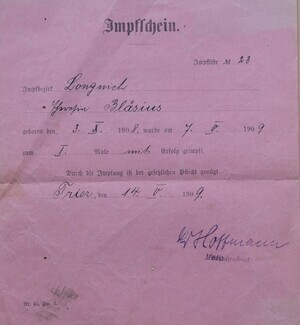 Impfschein.
Impfliste № 23
Impfbezirk Longuich
Bläsius
geboren den 3. X. 1908, wurde am 7. V. 1909
zum I. Male mit Erfolg geimpft.
Durch die Impfung ist der gesetzlichen Pflicht genügt.
Trier, den 14. V. 1909.
Dr Hoffmann